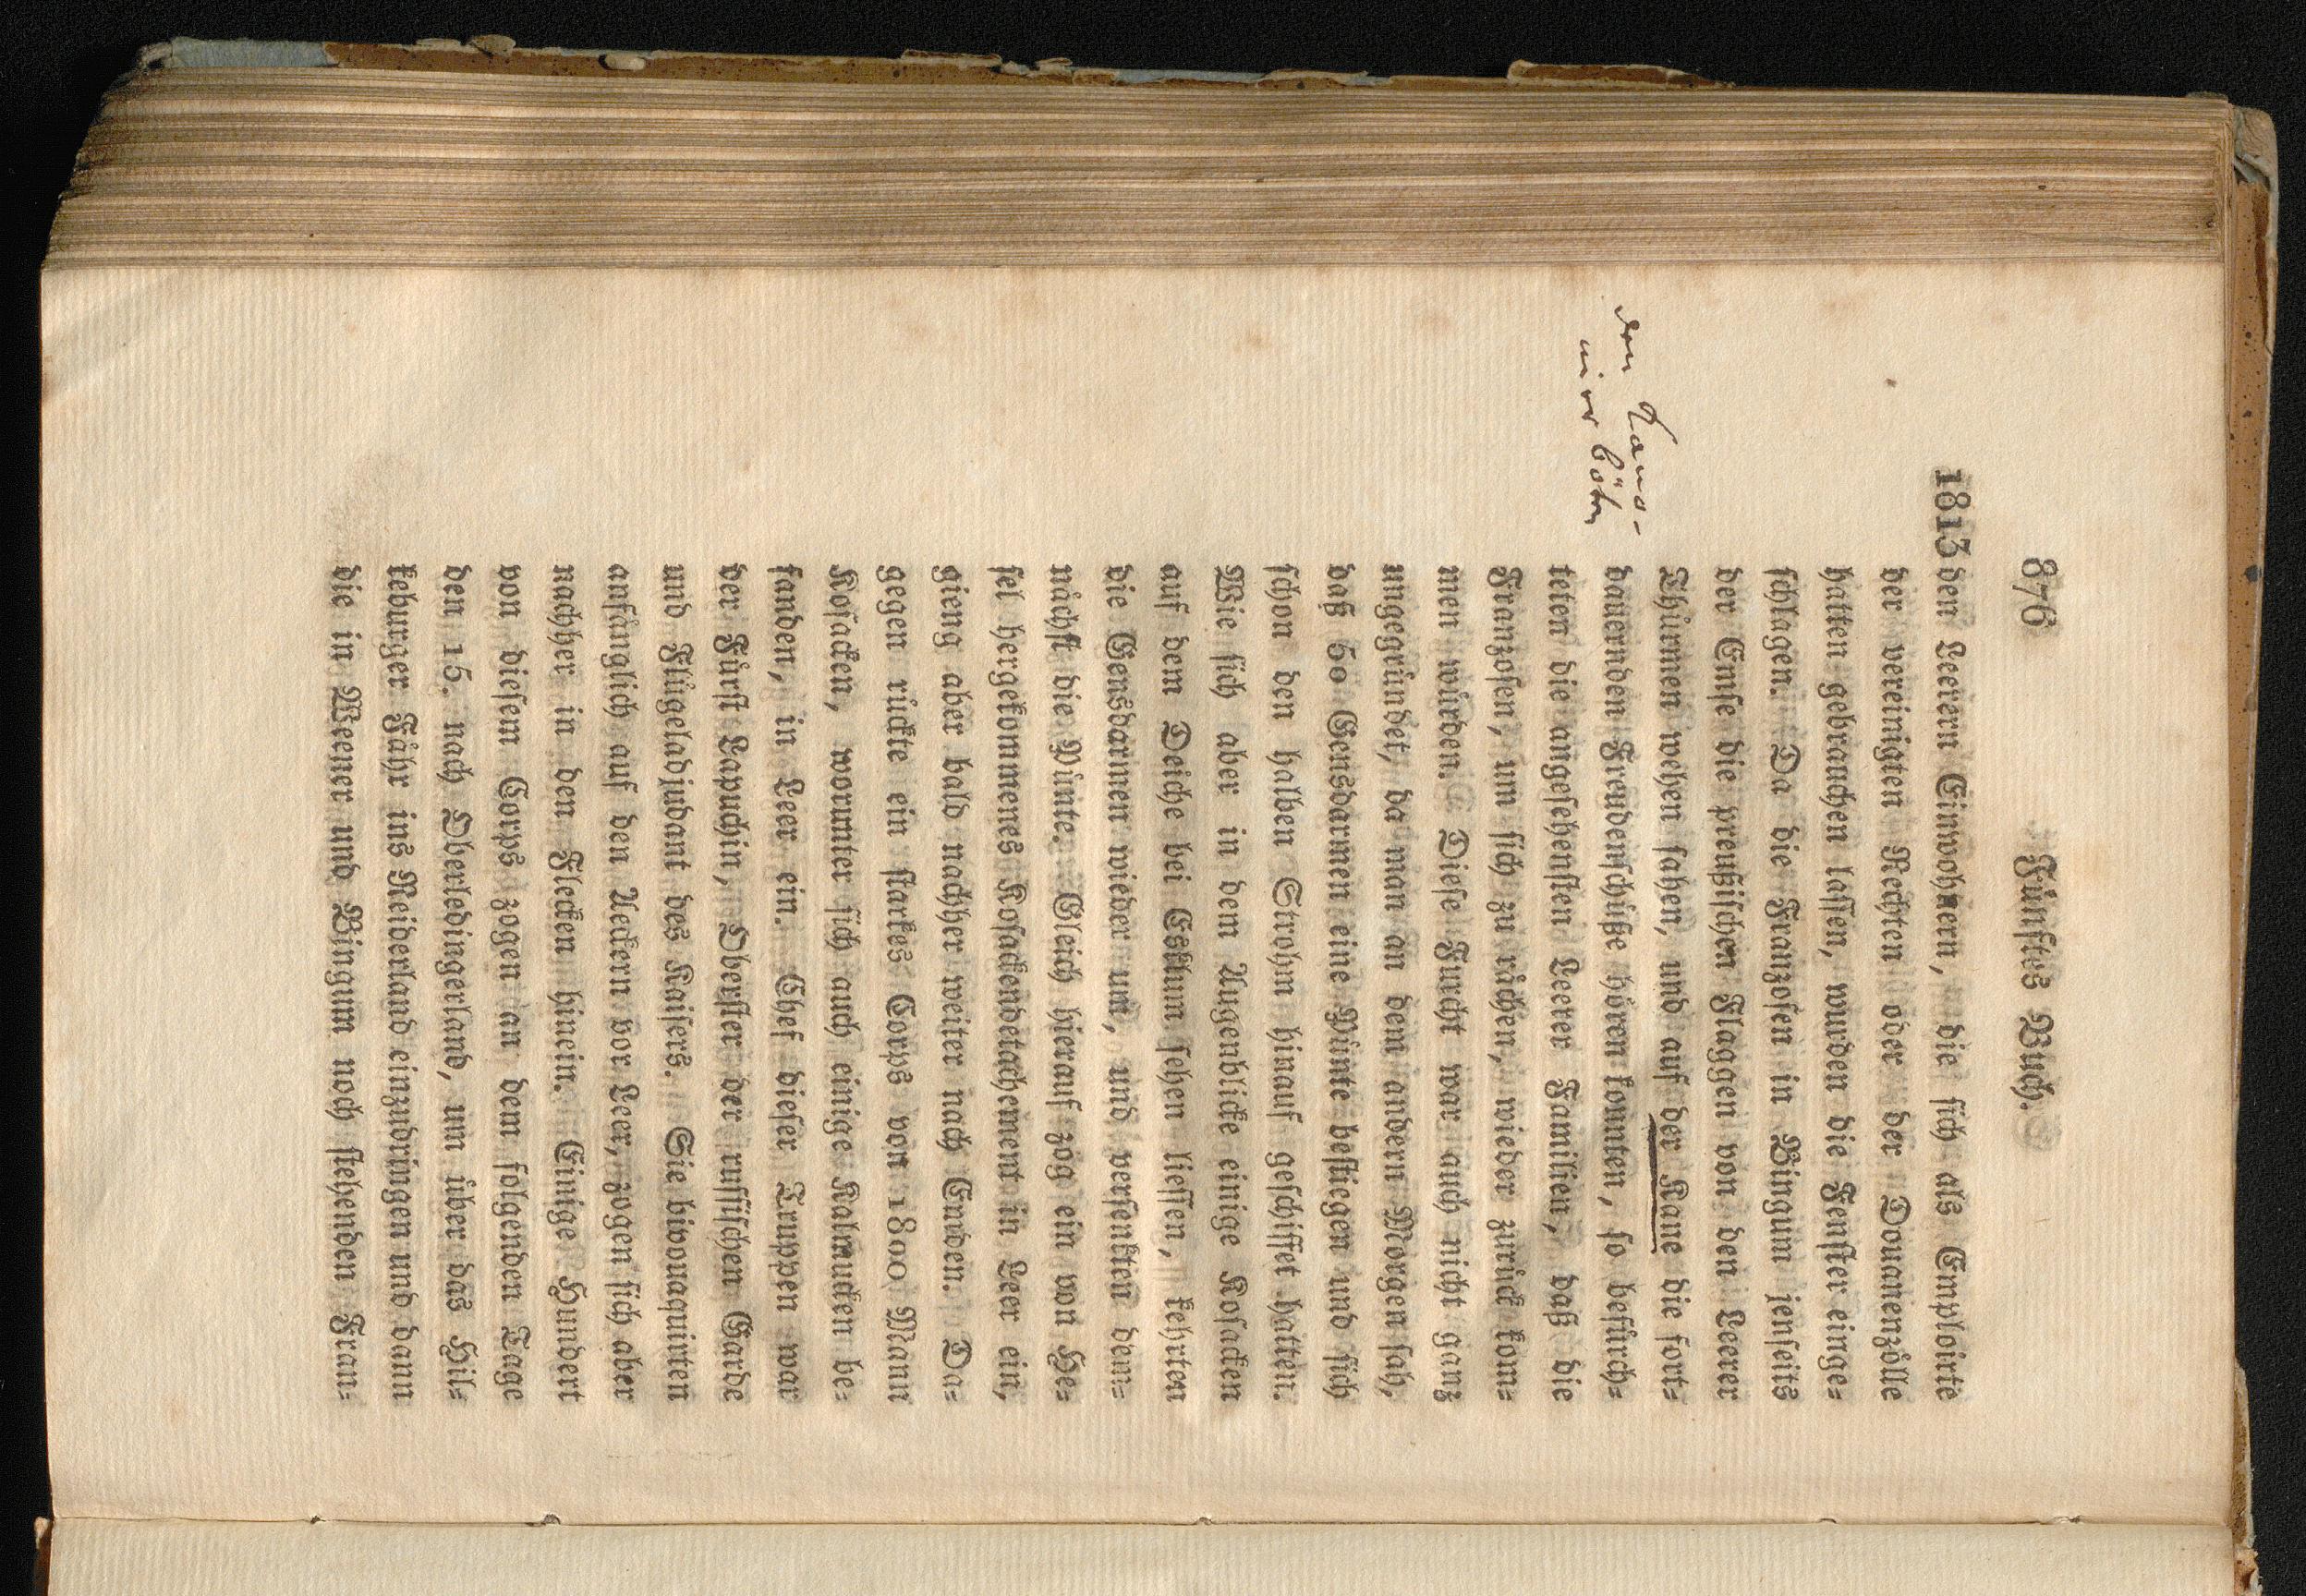 876 Fünftes Buch.
1813 den Leerern Einwohnern, die sich als Emploirte
der vereinigten Rechten oder der Douanenzölle
hatten gebrauchen lassen, wurden die Fenster einge=
schlagen. Da die Franzosen in Bingum jenseits
der Emse die preußischen Flaggen von den Leerer
Thürmen wehen sahen, und auf der Kane die fort=
dauernden Freudenschüße hören konnten, so befürch=
teten die angesehensten Leerer Familien, daß die
Franzosen, um sich zu rächen, wieder zurück kom=
men würden. Diese Furcht war auch nicht ganz
ungegründet, da man an dem andern Morgen sah,
daß 60 Gensdarmen eine Pünte bestiegen und sich
schon den halben Strohm hinauf geschiffet hatten.
Wie sich aber in dem Augenblicke einige Kosacken
auf dem Deiche bei Esklum sehen liessen, kehrten
die Gensdarmen wieder um, und versenkten dem=
nächst die Pünte. Gleich hierauf zog ein von He=
sel hergekommenes Kosackendetachement in Leer ein,
gieng aber bald nachher weiter nach Emden. Da=
gegen rückte ein starkes Corps von 1800 Mann
Kosacken, worunter sich auch einige Kalmucken be=
fanden, in Leer ein. Chef dieser Truppen war
der Fürst Lapuchin, Oberster der russischen Garde
und Flügeladjudant des Kaisers. Sie bivouaquirten
anfänglich auf den Aeckern vor Leer, zogen sich aber
nachher in den Flecken hinein. Einige Hundert
von diesem Corps zogen an dem folgenden Tage
den 16. nach Overledingerland, um über das Hil=
keburger Fähr ins Reiderland einzudringen und dann
die in Weener und Bingum noch stehenden Fran=
den Kano-
nierböten